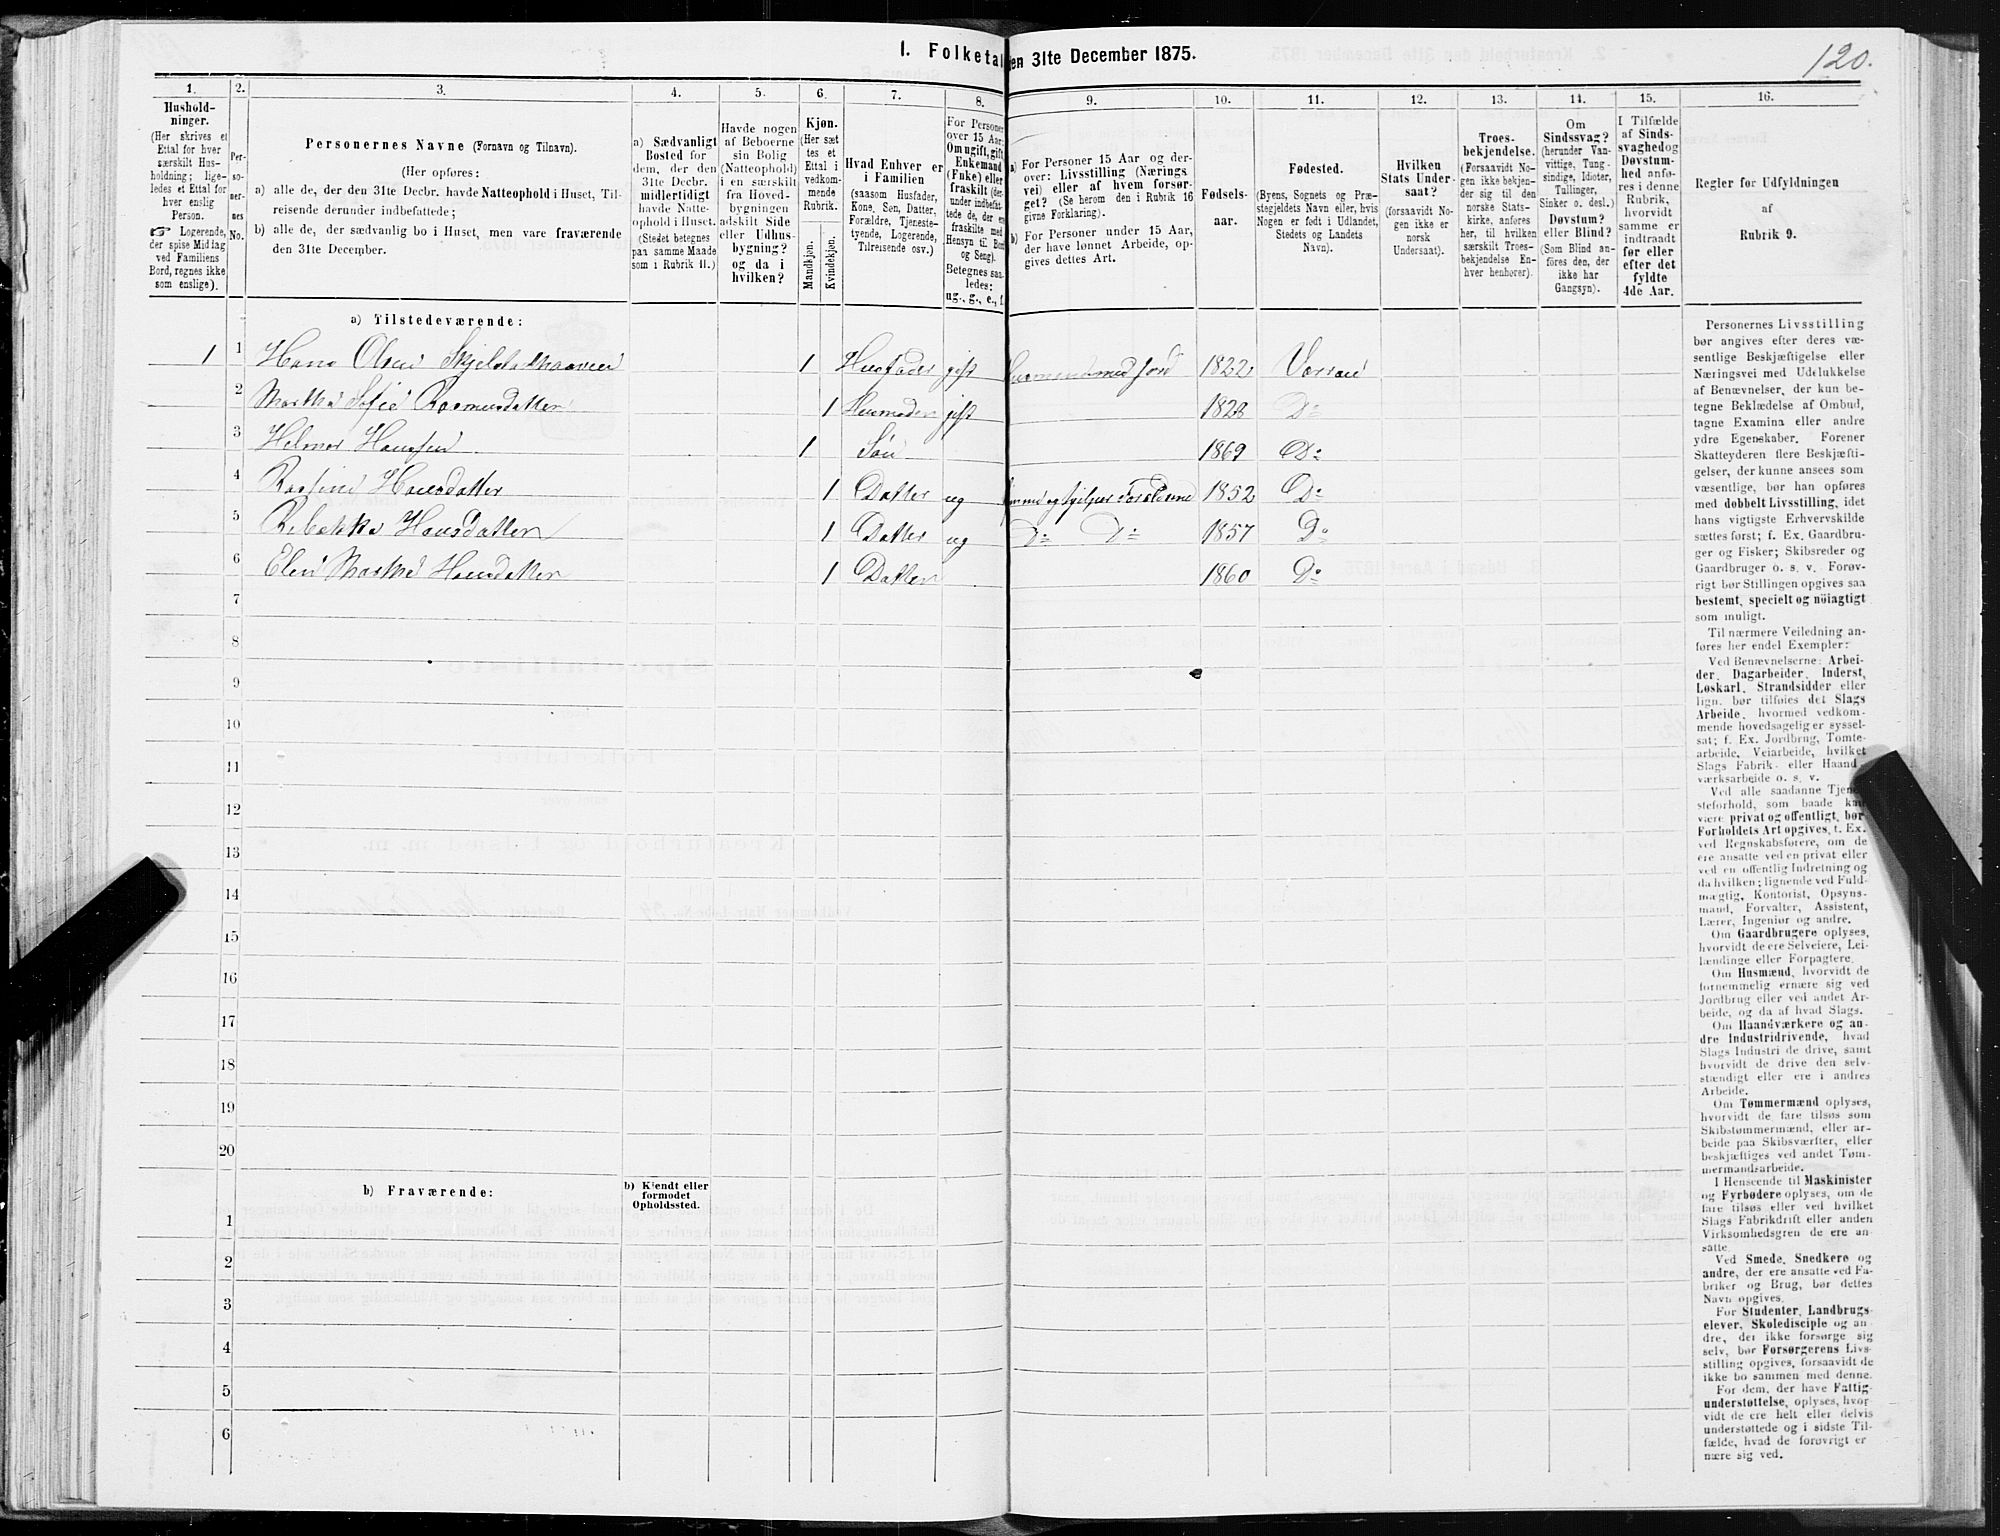 120.
1. Folketal
en 31te December 1875.
1. 2. 3. 4. 5. 6. 7. 8. 9. 10. 11. 12. 13. 14. 15. 16.
Hushold-
ninger.
(Her skrives et
Ettal for hver
særskilt Hus-
holdning; lige-
ledes et Ettal for
hver enslig
Person.
☞ Logerende,
der spise Middag
ved Familiens
Bord, regnes ikke
som enslige).
Per-
so-
ner-
nes
No.
Personernes Navne (Fornavn og Tilnavn).
(Her opføres:
a) alle de, der den 31te Decbr. havde Natteophold i Huset, Til-
reisende derunder indbefattede;
b) alle de, der sædvanlig bo i Huset, men vare fraværende
den 31te December.
a) Sædvanligt
Bosted for
dem, der den
31te Decbr.
midlertidigt
havde Natte-
ophold i Huset.
(Stedet betegnes
paa samme Maade
som i Rubrik 11.)
Havde nogen
af Beboerne
sin Bolig
(Natteophold)
i en særskilt
fra Hoved-
bygningen
adskilt Side
eller Udhus-
bygning?
og da i
hvilken?
Kjøn.
(Her sæt
tes et
Ettal i
vedkom-
mende
Rubrik.
Mandkjøn.
Kvindekjøn.
Hvad Enhver er
i Familien
(saasom Husfader,
Kone, Søn, Datter,
Forældre, Tjeneste-
tyende, Logerende,
Tilreisende osv.)
For Personer
over 15 Aar:
Om ugift, gift,
Enkemand
(Enke) eller
fraskilt (der-
under indbefat-
tede de, der er
fraskilte med
Hensyn til Bord
og Seng).
Betegnes saa-
ledes:
ug., g., e., f.
a) For Personer 15 Aar og der-
over: Livsstilling (Nærings
vei) eller af hvem forsør-
get? (Se herom den i Rubrik 16
givne Forklaring).
b) For Personer under 15 Aar,
der have lønnet Arbeide, op-
gives dettes Art.
Fødsels-
aar.
Fødested.
(Byens, Sognets og Præ-
stegjeldets Navn eller, hvis
Nogen er født i Udlandet,
Stedets og Landets
Navn).
Hvilken
Stats Under-
saat?
(forsaavidt No-
gen ikke er
norsk
Undersaat).
Troes-
bekjendelse.
(Forsaavidt No-
gen ikke bekjen-
der sig til den
norske Stats-
kirke, anføres
her, til hvilken
særskilt Troes-
bekjendelse En-
hver henhører).
Om
Sindssvag?
(herunder Van-
vittige, Tung-
sindige, Idioter,
Tullinger,
Sinker o. desl.)
Døvstum?
eller Blind?
(Som Blind an-
føres den, der
ikke har
Gangsyn).
I Tilfælde
af Sinds-
svaghed og
Døvstum-
hed anfø-
res i denne
Rubrik,
hvorvidt
samme er
indtraadt
før eller
efter det
fyldte
4de Aar.
Regler for Udfyldningen
af
Rubrik 9.
a) Tilstedeværende:
1 1 Hans Olsen Skjelstadhaaven 1 Husfader gift Husmand med Jord 1822 Værran
2 Martha Sofie Rasmusdatter 1 Husmoder gift 1828 Do
3 Helmer Hansen 1 Søn 1869 Do
4 Rasfine Hansdatter 1 Datter ug og hjelper Forældrene 1852 Do
5 Rebekka Hansdatter 1 Datter ug Do Do 1857 Do
6 Elen Marthe Hansdatter 1 Datter 1860 Do
7
8
9
10
11
12
13
14
15
16
17
18
19
20
b) Fraværende:
b) Kjendt eller
formodet
Opholdssted.
1
2
3
4
5
6
Personernes Livsstilling
bør angives efter deres væ-
sentlige Beskjæftigelse eller
Næringsvei med Udelukkelse
af Benævnelser, der kun be-
tegne Beklædelse af Ombud,
tagne Examina eller andre
ydre Egenskaber. Forener
Skatteyderen flere Beskjæfti-
gelser, der kunne ansees som
væsentlige, bør han opføres
med dobbelt Livsstilling, idet
hans vigtigste Erhvervskilde
sættes først; f. Ex. Gaardbru-
ger og Fisker; Skibsreder og
Gaardbruger o. s. v. Forøv-
rigt bør Stillingen opgives saa
bestemt, specielt og nöiagtigt
som muligt.
Til nærmere Veiledning an-
føres her endel Exempler:
Ved Benævnelserne: Arbei-
der, Dagarbeider, Inderst,
Løskarl, Strandsidder eller
lign. bør tilføies det Slags
Arbeide, hvormed vedkom-
mende hovedsagelig er syssel-
sat; f. Ex. Jordbrug, Tomte-
arbeide, Veiarbeide, hvilket
Slags Fabrik- eller Haand-
værksarbeide o. s. v.
Ved alle saadanne Tjene-
steforhold, som baade kan
være privat og offentligt, bør
Forholdets Art opgives, t. Ex.
ved Regnskabsførere, om de
ere ansatte ved en privat eller
ved en offentlig Indretning og
da hvilken; lignende ved Fuld-
mægtig, Kontorist, Opsyns-
mand, Forvalter, Assistent,
Lærer, Ingeniør og andre.
Om Gaardbrugere oplyses,
hvorvidt de ere Selveiere, Lei-
lændinge eller Forpagtere.
Om Husmænd, hvorvidt de
fornemmelig ernære sig ved
Jordbrug eller ved andet Ar-
beide, og da af hvad Slags.
Om Haandværkere og an-
dre Industridrivende, hvad
Slags Industri de drive, samt
hvorvidt de drive den selv-
stændigt eller ere i andres
Arbeide.
Om Tømmermænd oplyses,
hvorvidt de fare tilsøs som
Skibstømmermænd, eller ar-
beide paa Skibsværfter, eller
beskjæftiges ved andet Tøm-
mermandsarbeide.
I Henseende til Maskinister
og Fyrbødere oplyses, om de
fare tilsøs eller ved hvilket
Slags Fabrikdrift eller anden
Virksomhedsgren de ere an-
satte.
Ved Smede, Snedkere og
andre, der ere ansatte ved Fa-
briker og Brug, bør dettes
Navn opgives.
For Studenter, Landbrugs-
elever, Skoledisciple og an-
dre, der ikke forsørge sig
selv, bør Forsørgerens Livs-
stilling opgives, forsaavidt de
ikke bo sammen med denne.
For dem, der have Fattig-
understøttelse, oplyses, hvor-
vidt de ere helt eller delvis
understøttede og i sidste Til-
fælde, hvad de forøvrigt er
nære sig ved.